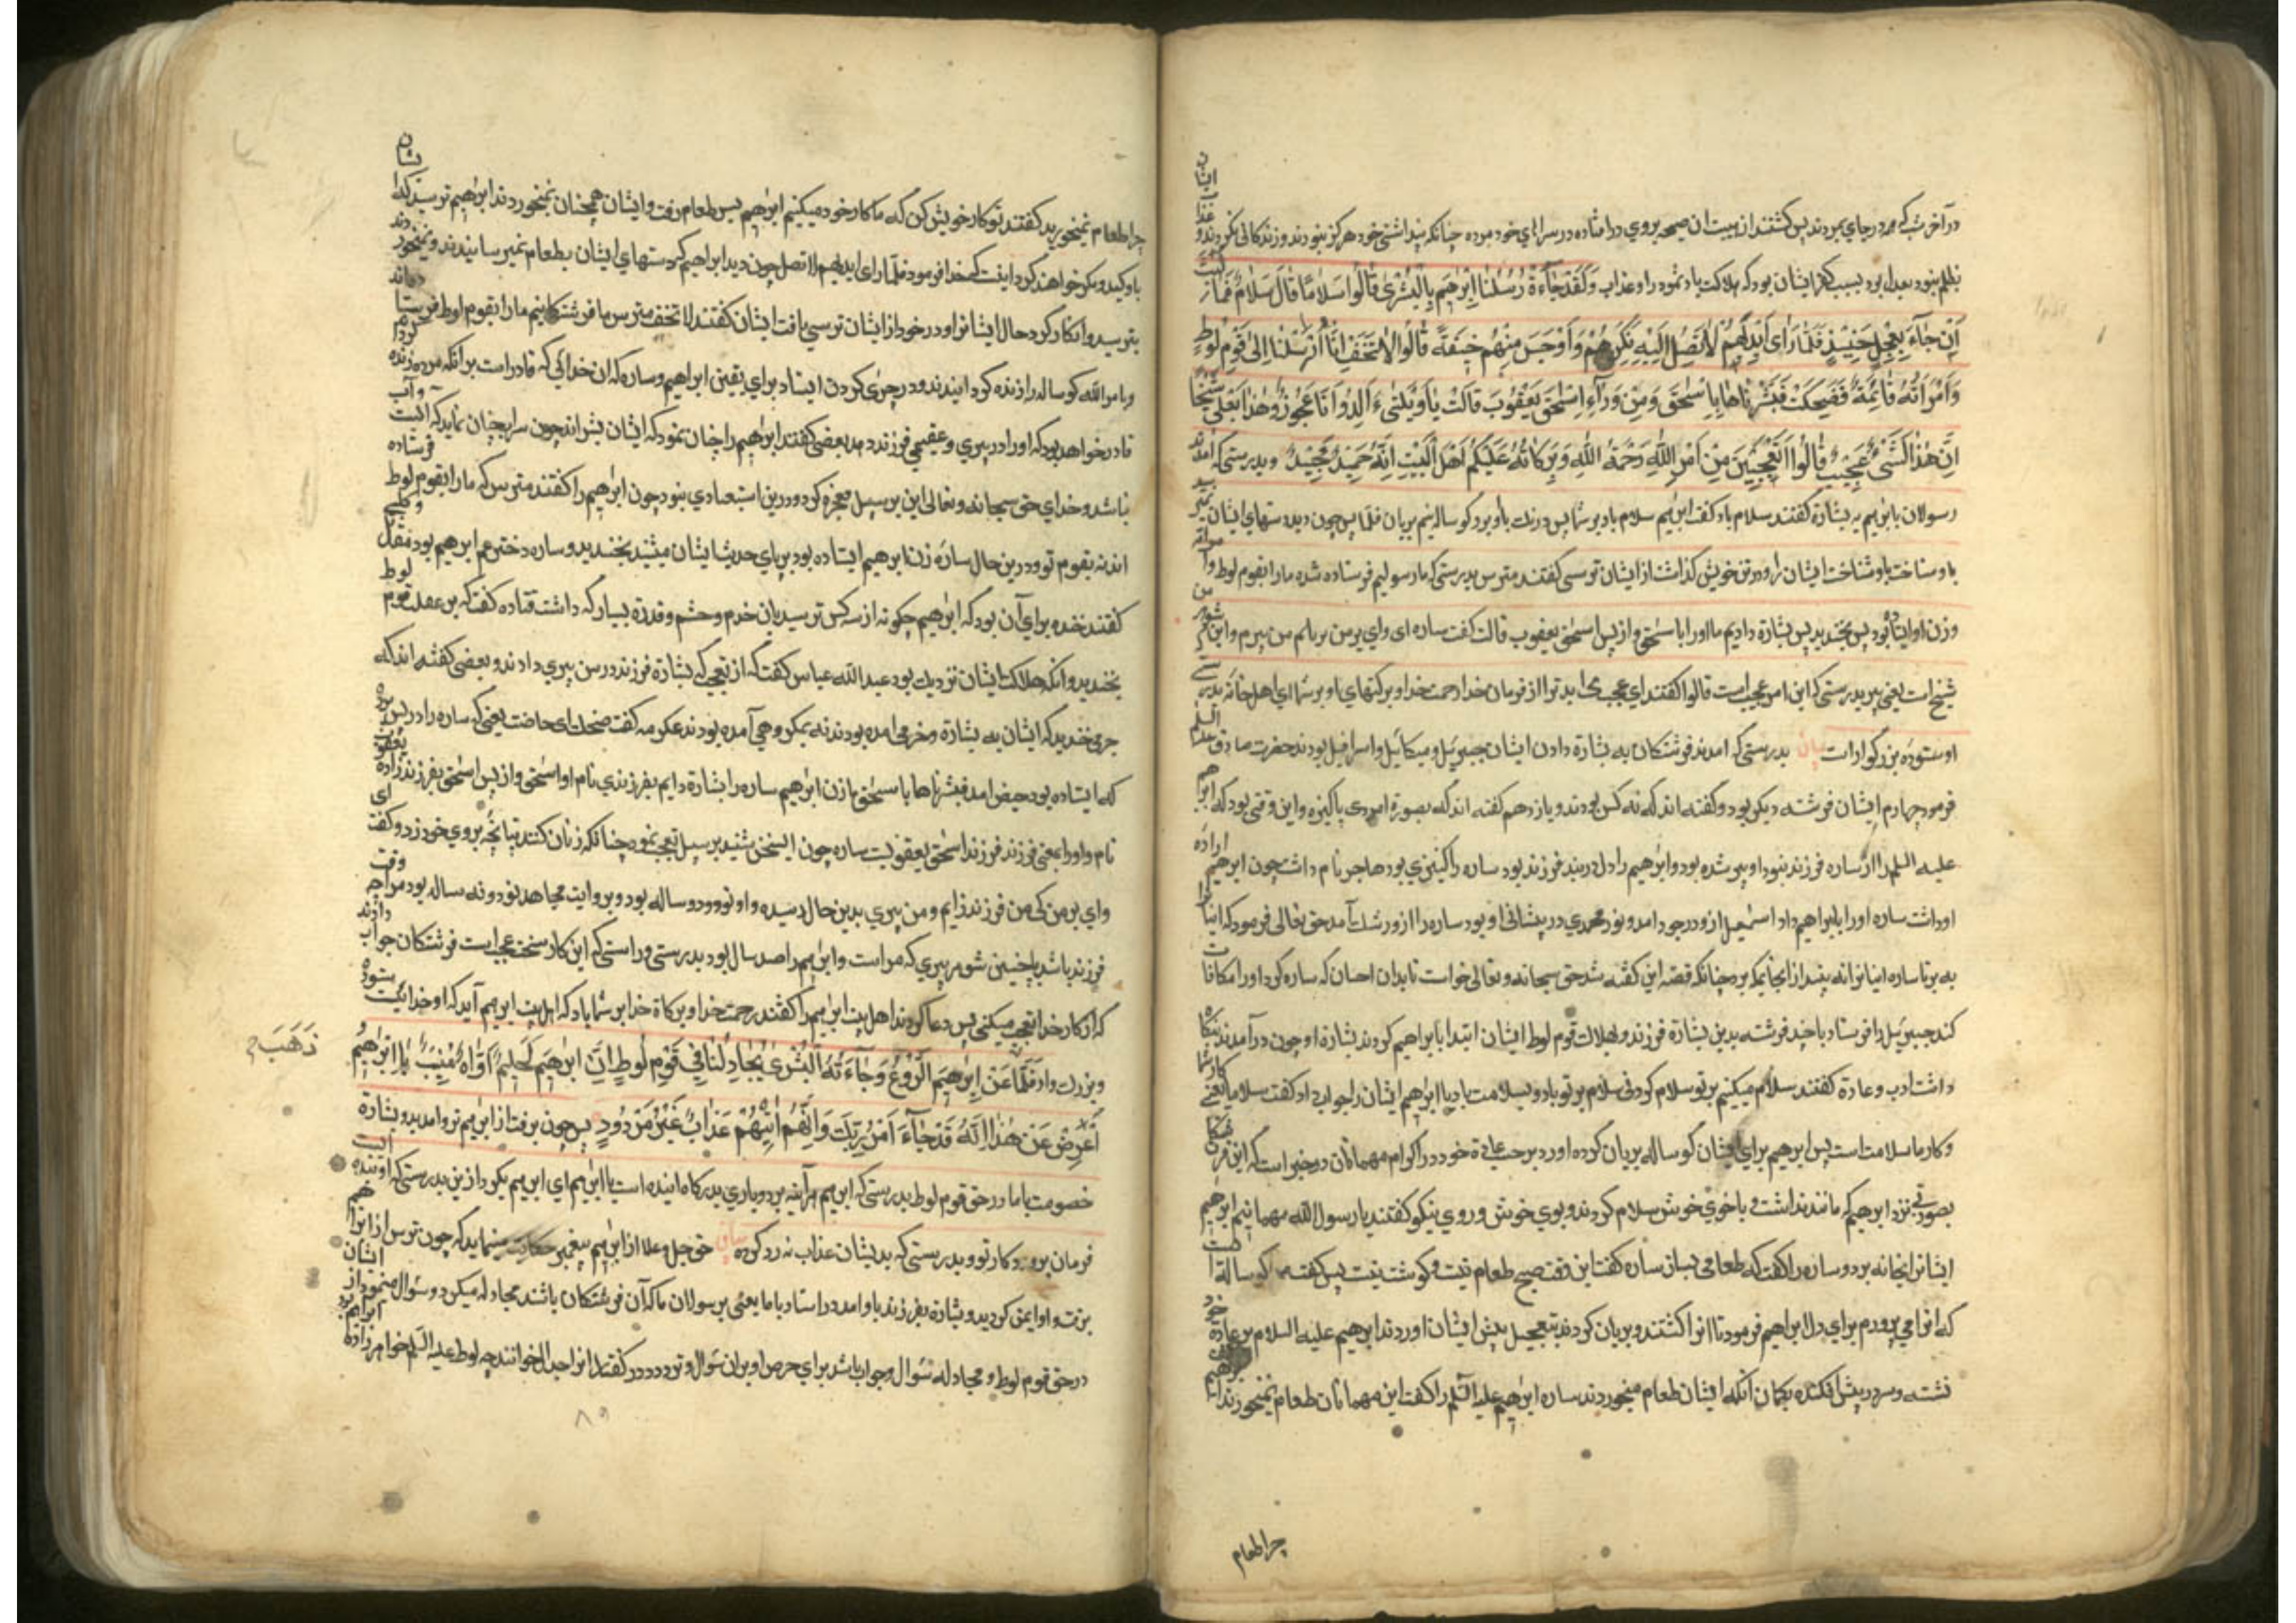 در آخر شب که هر در جای بمردند پس کشتند از هیبت ان صیحه بروی در افتاده در سراهای خود مرده چنانکه پنداشتی خود هرگز نبودند و زندکانی نکردند و
بظلم نبود بعدل بود بسبب کفر ایشان بود که هلاکت باد ثمود را و عذاب وَلَقَدْ جَآءَتْ رُسُلُنَا اِبْرٰهِیمَ بِالْبُشْرٰی قَالُوا سَلَامًا قَالَ سَلَامٌ فَمَا لَبِثَ
اَنْ جَآءَ بِعِجْلٍ حَنِیذٍ فَلَمَّا رَاٰی اَیْدِیَهُمْ لَا تَصِلُ اِلَیْهِ نَکِرَهُمْ وَاَوْجَسَ مِنْهُمْ خِیفَةً قَالُوا لَا تَخَفْ اِنَّا اُرْسِلْنَا اِلٰی قَوْمِ لُوطٍ
وَامْرَاَتُهُ قَائِمَةٌ فَضَحِکَتْ فَبَشَّرْنَاهَا بِاِسْحٰقَ وَمِنْ وَرَآءِ اِسْحٰقَ یَعْقُوبَ قَالَتْ یَا وَیْلَتٰی ءَاَلِدُ وَاَنَا عَجُوزٌ وَهٰذَا بَعْلِی شَیْخًا
اِنَّ هٰذَا لَشَیْءٌ عَجِیبٌ قَالُوا اَتَعْجَبِینَ مِنْ اَمْرِ اللّٰهِ رَحْمَةُ اللّٰهِ وَبَرَکَاتُهُ عَلَیْکُمْ اَهْلَ الْبَیْتِ اِنَّهُ حَمِیدٌ مَجِیدٌ و بدرستی که امدند
رسولان بابرٰهیم به بشارة کفتند سلام باد کفت ابرٰهیم سلام باد بر شما پس درنک باو برد کوساله نیم بریان فلما پس چون دید دستهای ایشان نمیرسید
باو و شناخت ایشان را و در تن خویش کذاشت از ایشان ترسی کفتند مترس بدرستی که ما رسولیم فرستاده شده ما را بقوم لوط و
وزن او ایستاده بود پس بخندید پس بشارة دادیم ما او را باسحٰق و از پس اسحٰق یعقوب قالت کفت ساره ای وای بر من من پیرم و این شوهر من
شیخ است یعنی پیر بدرستی که این امر عجیب است قالوا کفتند ای عجب از فرمان خدا رحمت خدا و برکتهای او بر شما ای اهل خانه بدرستی
او ستوده بزرکوار است بیان بدرستی که امدند فرشتکان به بشارة دادن ایشان جبرئیل و میکائیل و اسرافیل بودند حضرت صادق علیه السلم
فرمود چهارم ایشان فرشته دیکر بود و کفته اند که نه کس بودند و یازدهم کفته اند که بصورة امردی پاکیزه و این وقتی بود که ابرٰهیم
علیه السلم را از ساره فرزند نبود او پیر شده بود و ابرٰهیم را دل در بند فرزند بود ساره را کنیزی بود هاجر نام داشت چون ابرٰهیم اراده
او داشت ساره او را بابراهیم داد اسمٰعیل ازو در وجود امد و نور محمدی در پیشانی او بود ساره را ازو رشک آمد حق تعالی فرمود که
به بر تا ساره چنانکه قصه این کفته شد حق سبحانه و تعالی خواست تا بدان احسان که ساره کرد او را مکافات
کند جبرئیل را فرستاد با چند فرشته بدین بشارة فرزند و هلاک قوم لوط ایشان ابتدا بابراهیم کردند بشارة او چون در آمدند
داشت ادب و عادة کفتند سلام میکنیم بر تو سلام کردنی سلام بر تو باد و سلامت باد یا ابرٰهیم ایشان را جواب داد کفت سلام یعنی کار شما
و کار ما سلامت است پس ابرهیم برای ایشان کوساله بریان کرده اورد بر حسب عادة خود در اکرام مهمانان در خبر است که این فرشتکان
بصورتی نزد ابرهیم که مانند نداشت با خوی خوش سلام کردند و بوی خوش و روی نیکو کفتند یا رسول الله مهمانیم ابرهیم
ایشانرا بخانه برد و ساره را کفت که طعامی بساز ساره کفت این وقت صبح طعام نیست و کوشت نیست پس کفت کوساله است
که انرا می پرورم برای دل ابراهیم فرمود تا انرا کشتند و بریان کردند بتعجیل پیش ایشان اوردند ابرهیم علیه السلام بر عادة خود
نشسته و سر در پیش افکنده بکمان انکه ایشان طعام میخوردند ساره ابرٰهیم علیه السلم را کفت این مهمانان طعام نمیخورند ابراهیم کفت
چرا طعام
چرا طعام نمیخورید کفتند تو کار خویش کن که ما کار خود میکنیم ابرٰهیم پس طعام رفت و ایشان همچنان نمیخوردند ابرٰهیم ترسید که ایشان
باو کید و مکر خواهند کرد اینست که خدا فرمود فلما رای ایدیهم لا تصل چون دید ابراهیم که دستهای ایشان بطعام نمیرسانیدند و نمیخوردند
بترسید و انکار کرد حال ایشانرا و در خود از ایشان ترسی یافت ایشان کفتند لا تخف مترس ما فرشتکانیم ما را بقوم لوط فرستاده اند
و بامر الله کوساله را زنده کردانیدند و در چری کردن ایستاد برای یقین ابراهیم و ساره که ان خدائی که قادر است برانکه مرده زنده کرداند
قادر خواهد بود که او را در پیری و عقیمی فرزند دهد بعضی کفتند ابرٰهیم را چنان نمود که ایشان بشراند چون سراب چنان نماید که ابست و آب
نباشد و خدای حق سبحانه و تعالی این بر سبیل معجزه کرد و درین استبعادی نبود چون ابرٰهیم را کفتند مترس که ما را بقوم لوط فرستاده
اند نه بقوم تو و درین حال ساره زن ابرهیم ایستاده بود بر پای حدیث ایشان میشنید بخندید و ساره دختر عم ابرهیم بود مقاتل و کلبی
کفتند خنده برای آن بود که ابرٰهیم چکونه از سه کس ترسید بان خدم و حشم و قدرة بسیار که داشت قتاده کفت که بر غفلت قوم لوط
بخندید و انکه هلاکت ایشان نزدیک بود عبد الله عباس کفت که از تعجبی که بشارة فرزند در سن پیری دادند و بعضی کفته اند که
خندید که ایشان به بشارة و خرمی امده بودند نه بمکر و هی آمده بودند عکرمه کفت ضحکت ای حاضت یعنی که ساره را در پس پرده
که ایستاده بود حیض امد فبشرناها باسحٰق ما زن ابرهیم ساره را بشارة دادیم بفرزندی نام او اسحٰق و از پس اسحٰق بفرزند زاده یعقوب
نام و او را بمعنی فرزند فرزند اسحٰق یعقوبست ساره چون این سخن شنید بر سبیل تعجب نمود چنانکه زنان کنند تپانچه بروی خود زد و کفت ای
وای بر من کی من فرزند زایم و من پیری بدین حال رسیده و او نود و دو ساله بود و بروایت مجاهد نود و نه ساله بود مرا چه وقت
فرزند باشد با چنین شوهر پیری که مراست و ابرٰهیم را صد سال بود بدرستی و راستی که این کار سخت عجب است فرشتکان جواب دادند
که از کار خدا تعجب میکنی پس دعا کردند اهل بیت ابرٰهیم را کفتند رحمت خدا و برکاة خدا بر شما باد که اهل بیت ابرٰهیم آید که او خدائیست ستوده
و بزرکوار فَلَمَّا عَنْ اِبْرٰهِیمَ الرَّوْعُ وَجَآءَتْهُ الْبُشْرٰی یُجَادِلُنَا فِی قَوْمِ لُوطٍ اِنَّ اِبْرٰهِیمَ لَحَلِیمٌ اَوَّاهٌ مُنِیبٌ یَا اِبْرٰهِیمُ
ذَهَبَ
اَعْرِضْ عَنْ هٰذَا اِنَّهُ قَدْ جَآءَ اَمْرُ رَبِّکَ وَاِنَّهُمْ اٰتِیهِمْ عَذَابٌ غَیْرُ مَرْدُودٍ پس چون برفت از ابرٰهیم ترس و امد بدو بشارة
خصومت با ما در حق قوم لوط بدرستی که ابرٰهیم هرآینه بردباری بدرکاه ایننده است یا ابرٰهیم ای ابرٰهیم بکرد از ین بدرستی که
فرمان پروردکار تو و بدرستی که بدیشان عذاب نه رد کرده بیان حق جل و علا از ابرٰهیم پیغمبر حکایت مینماید که چون ترس از ابرٰهیم
برفت و او ایمن کردید و بشارة بفرزند باو امد در استاد با ما یعنی بر سولان ما که آن فرشتکان باشند مجادله میکرد و سؤال مینمود از ایشان
در حق قوم لوط و مجادله سؤال و جواب باشد برای حرص او بران سؤال و تردد کفتند انرا جدال خوانند چه لوط علیه السلم خواهر زاده ابراهیم بود
۸۹